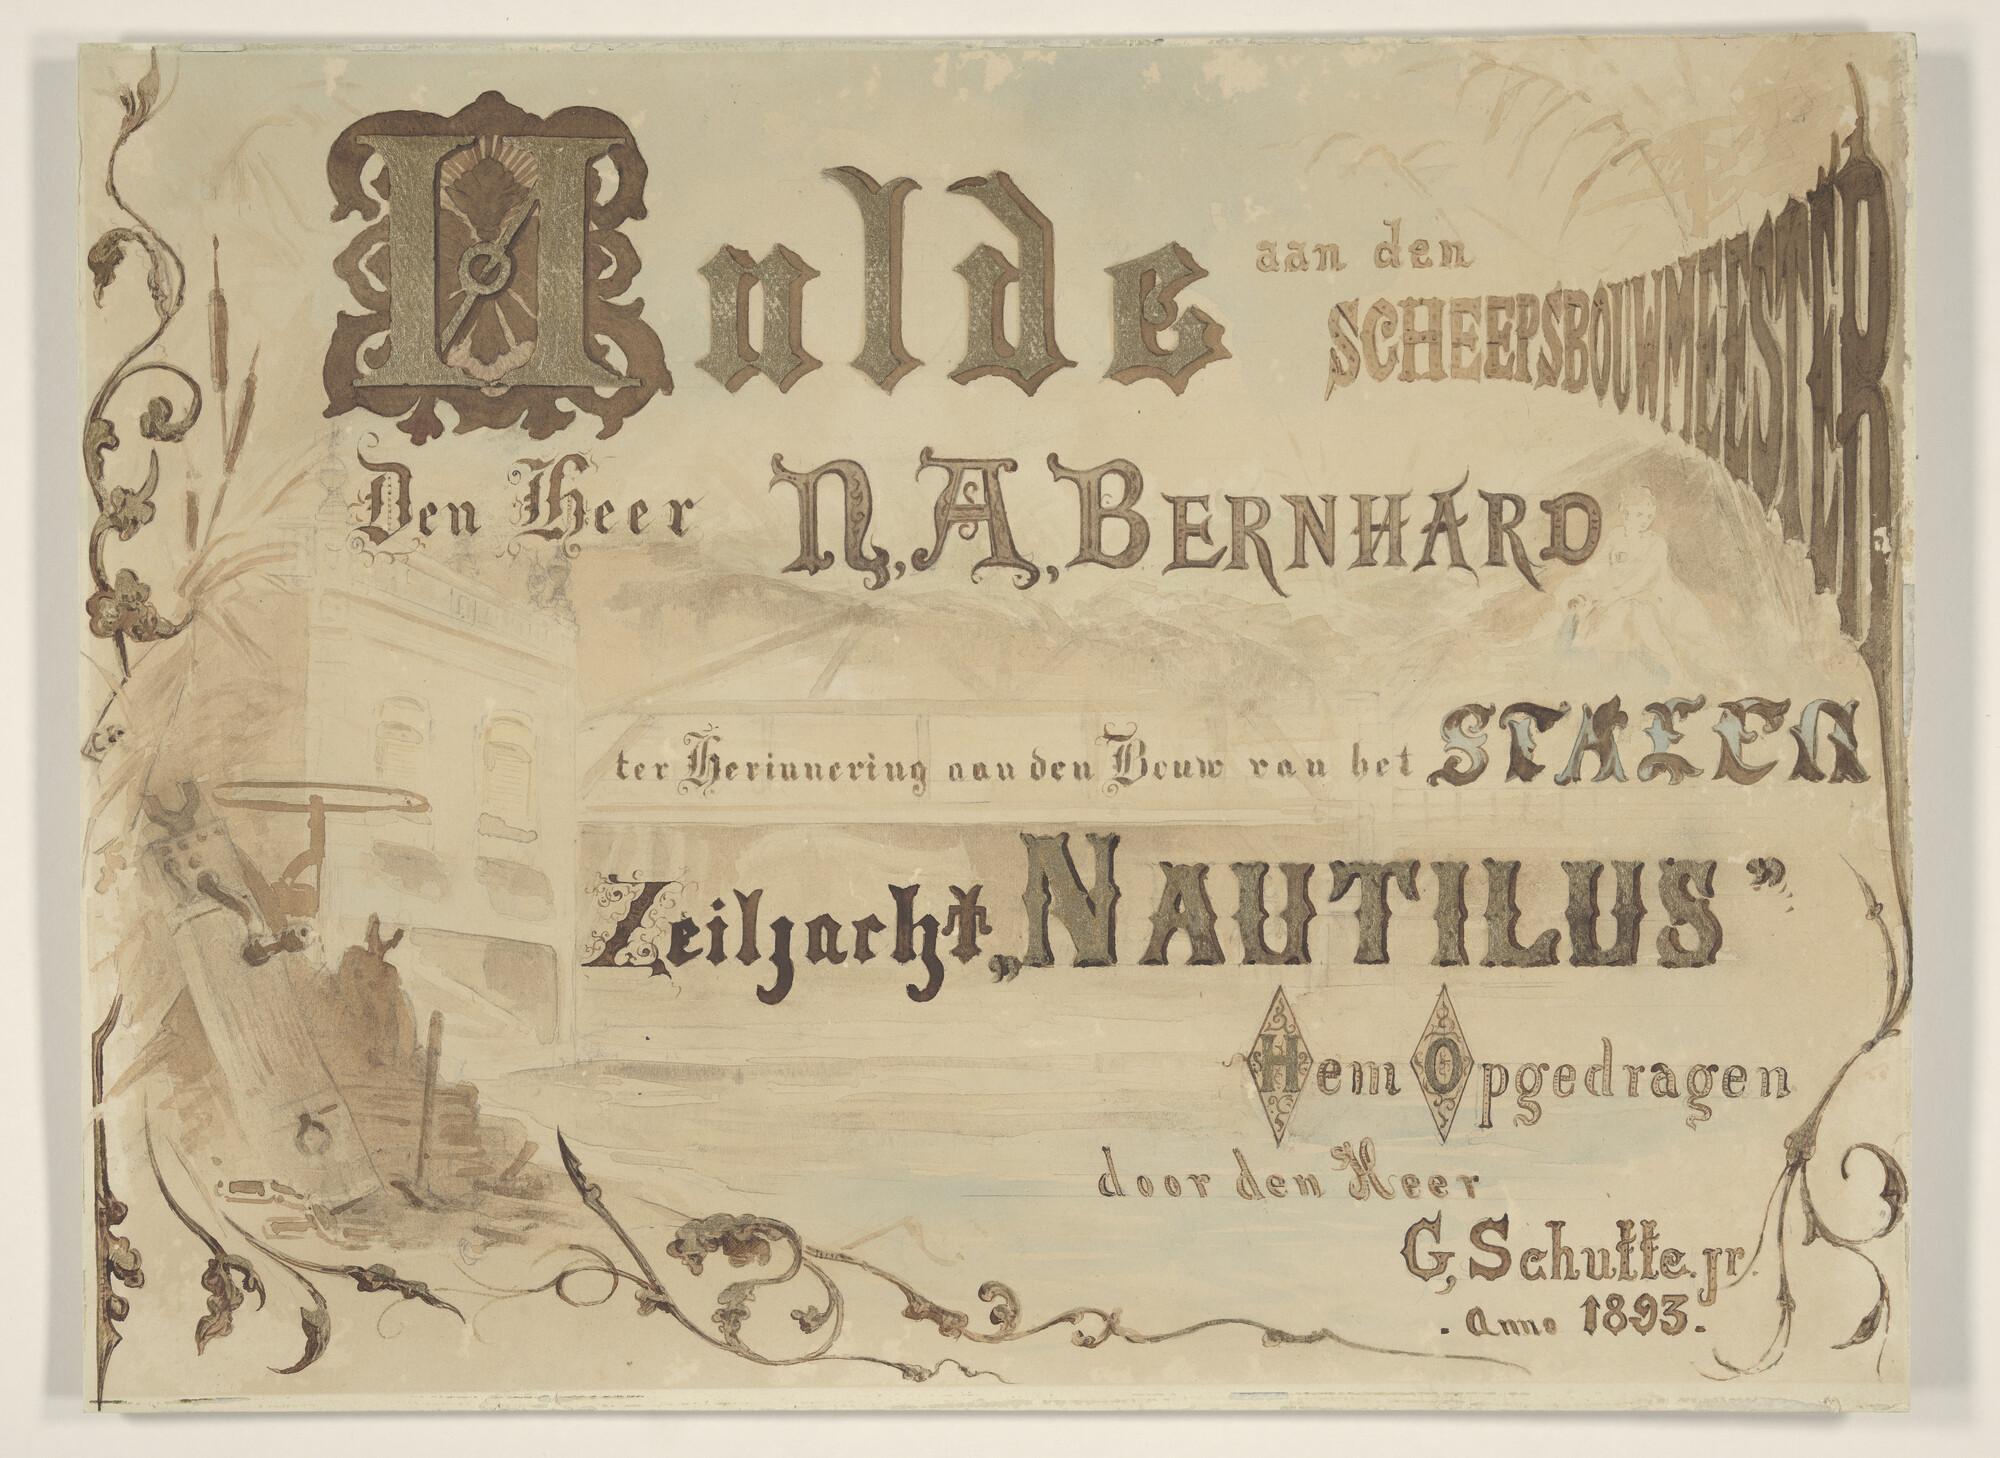 Hulde aan den
SCHEEPSBOUWMEESTER
Den Heer N, A, BERNHARD
ter Herinnering aan den Bouw van het STALEN
Zeiljacht „NAUTILUS”
Hem Opgedragen
door den Heer
G, Schutte. jr.
. Anno 1893.